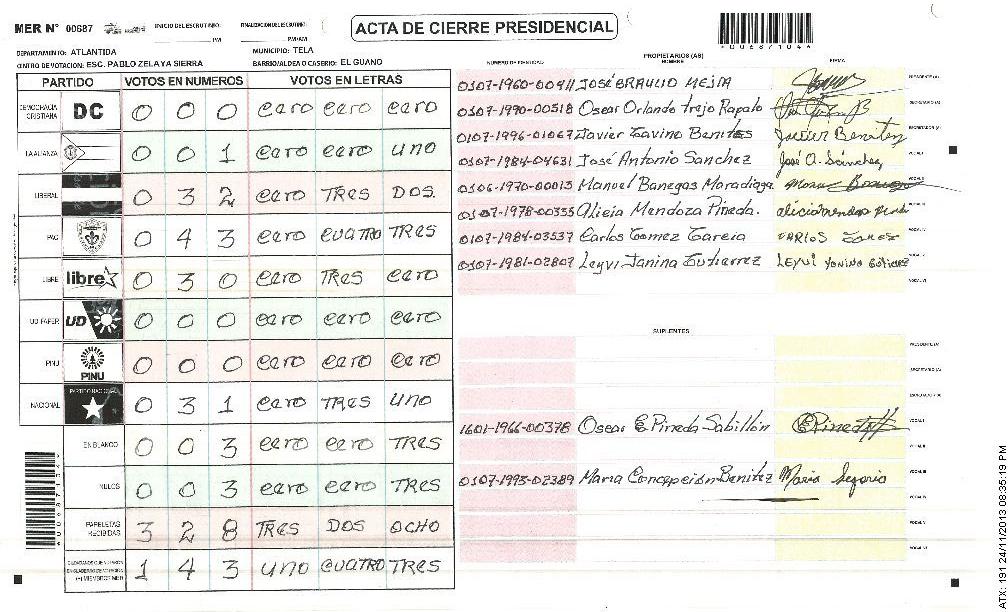 MER N° 00687 INICIO DEL ESCRUTINIO: PM FINALIZACION DEL ESCRUTINIO: PM/AM
ACTA DE CIERRE PRESIDENCIAL
DEPARTAMENTO: ATLANTIDA MUNICIPIO: TELA
CENTRO DE VOTACION: ESC. PABLO ZELAYA SIERRA BARRIO/ALDEA O CASERIO: EL GUANO
PARTIDO VOTOS EN NUMEROS VOTOS EN LETRAS
DEMOCRACIA CRISTIANA DC 0 0 0 cero cero cero
LA ALIANZA 0 0 1 cero cero uno
LIBERAL 0 3 2 cero TRES DOS.
PAC 0 4 3 cero cuatro TRES
LIBRE libre 0 3 0 cero TRES cero
UD FAPER UD 0 0 0 cero cero cero
PINU PINU 0 0 0 cero cero cero
NACIONAL PARTIDO NACIONAL 0 3 1 cero TRES uno
EN BLANCO 0 0 3 cero cero TRES
NULOS 0 0 3 cero cero TRES
PAPELETAS RECIBIDAS 3 2 8 TRES DOS OCHO
1 4 3 uno cuatro TRES
NUMERO DE IDENTIDAD PROPIETARIOS (AS) NOMBRE FIRMA
0107-1960-00911 JOSÉ BRAULIO MEJIA PRESIDENTE (A)
0107-1990-00518 Oscar Orlando Trejo Rapalo SECRETARIO (A)
0107-1996-01067 Javier Gavino Benites Javier Benitez ESCRUTADOR (A)
0107-1984-04631 José Antonio Sanchez José A. Sánchez VOCAL I
0506-1970-00013 Manuel Banegas Maradiaga VOCAL II
0107-1978-00335 Alicia Mendoza Pineda. VOCAL III
0107-1984-03537 Carlos Gomez Garcia CARLOS GOMEZ VOCAL IV
0107-1981-02807 Leyvi Janina Gutierrez VOCAL V
VOCAL VI
SUPLENTES
PRESIDENTE (A)
SECRETARIO (A)
ESCRUTADOR (A)
1601-1966-00378 Oscar E Pineda Sabillón VOCAL I
VOCAL II
0107-1993-02389 Maria Concepcion Benitez VOCAL III
VOCAL IV
VOCAL V
VOCAL VI
ATX: 191 24/11/2013 08:35:19 PM